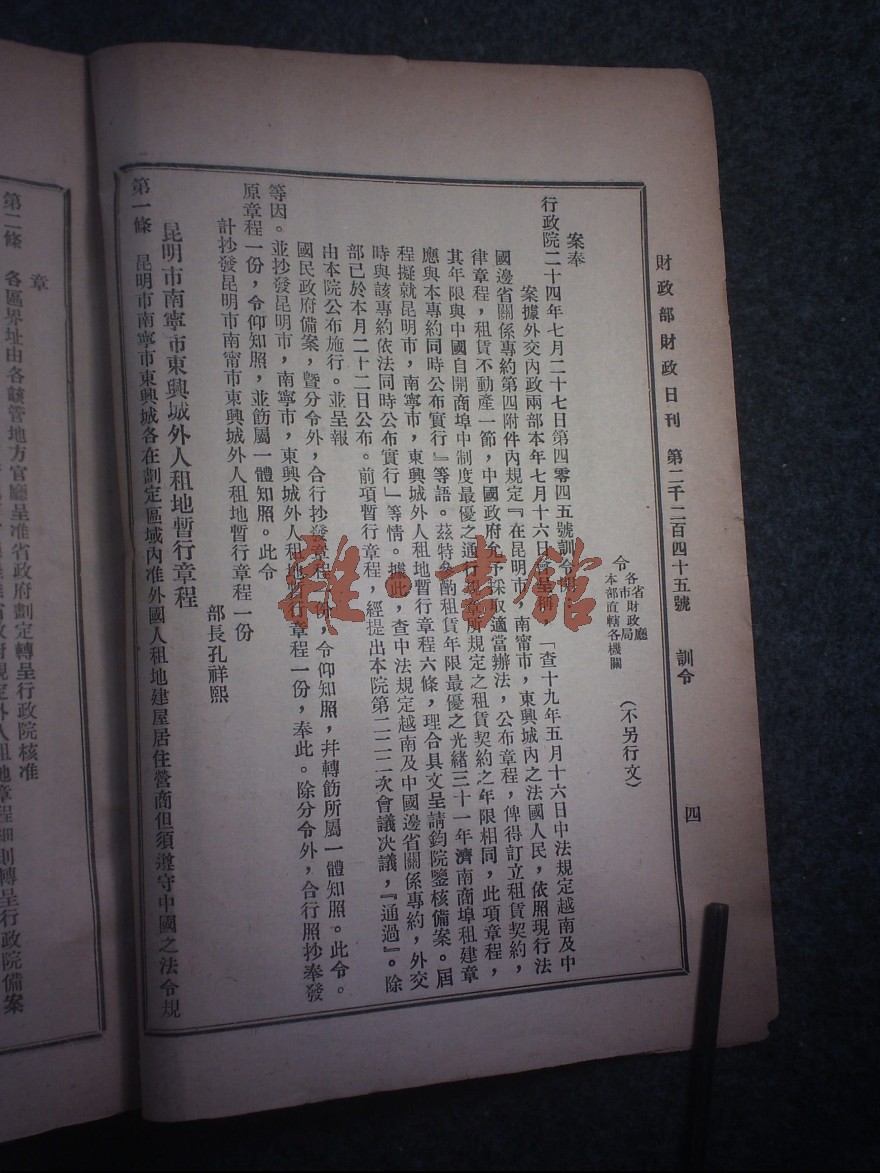 財政部財政日刊　第二千二百四十五號　訓令　四
令
各省市財政廳局
本部直轄各機關
（不另行文）
案奉
行政院二十四年七月二十七日第四零四五號訓令開：
案據外交內政兩部本年七月十六日會呈稱「查十九年五月十六日中法規定越南及中
國邊省關係專約第四附件內規定『在昆明市，南甯市，東興城內之法國人民，依照現行法
律章程，租賃不動產一節，中國政府允予採取適當辦法，公布章程，俾得訂立租賃契約，
其年限與中國自開商埠中制度最優之通行規章所規定之租賃契約之年限相同，此項章程，
應與本專約同時公布實行』等語。茲特參酌租賃年限最優之光緒三十一年濟南商埠租建章
程擬就昆明市，南寧市，東興城外人租地暫行章程六條，理合具文呈請鈞院鑒核備案。屆
時與該專約依法同時公布實行」等情。據此，查中法規定越南及中國邊省關係專約，外交
部已於本月二十二日公布。前項暫行章程，經提出本院第二二二次會議決議，『通過』。除
由本院公布施行。並呈報
國民政府備案，暨分令外，合行抄發章程一份，令仰知照，幷轉飭所屬一體知照。此令。
等因。並抄發昆明市，南寧市，東興城外人租地暫行章程一份，奉此。除分令外，合行照抄奉發
原章程一份，令仰知照，並飭屬一體知照。此令
計抄發昆明市南甯市東興城外人租地暫行章程一份
部長孔祥熙
昆明市南寧市東興城外人租地暫行章程
第一條　昆明市南寧市東興城各在劃定區域內准外國人租地建屋居住營商但須遵守中國之法令規
章
第二條　各區界址由各該管地方官廳呈准省政府劃定轉呈行政院核准
省政府規定外人租地章程細則轉呈行政院備案
雜·書館